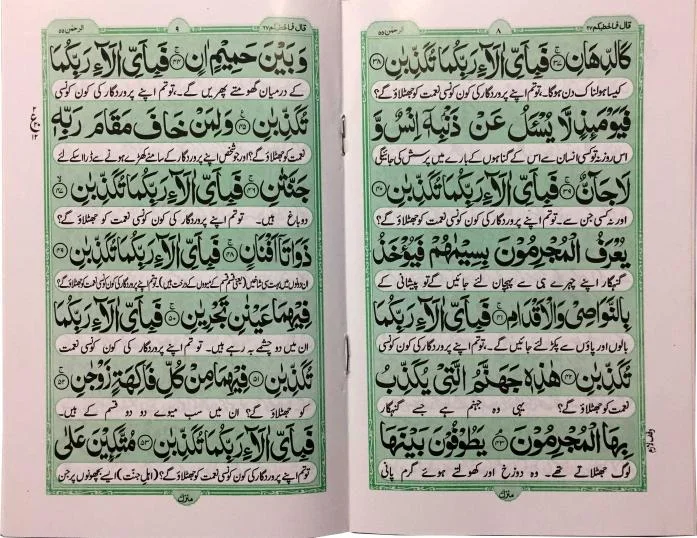 قال فما خطبکم ۲۷
۸
الرحمٰن ۵۵
كَالدِّهَانِ ﴿۳۷﴾ فَبِأَيِّ اٰلَآءِ رَبِّكُمَا تُكَذِّبٰنِ ﴿۳۸﴾
کیسا ہولناک دن ہوگا۔ تو تم اپنے پروردگار کی کون کونسی نعمت کو جھٹلاؤ گے؟
فَيَوْمَئِذٍ لَّا يُسْـَٔلُ عَنْ ذَنْۢبِهٖٓ اِنْسٌ وَّ
اس روز نہ تو کسی انسان سے اس کے گناہوں کے بارے میں پرسش کی جائیگی
لَا جَآنٌّ ﴿۳۹﴾ فَبِأَيِّ اٰلَآءِ رَبِّكُمَا تُكَذِّبٰنِ ﴿۴۰﴾
اور نہ کسی جن سے۔ تو تم اپنے پروردگار کی کون کونسی نعمت کو جھٹلاؤ گے؟
يُعْرَفُ الْمُجْرِمُوْنَ بِسِيْمٰهُمْ فَيُؤْخَذُ
گنہگار اپنے چہرے ہی سے پہچان لئے جائیں گے تو پیشانی کے
بِالنَّوَاصِيْ وَالْاَقْدَامِ ﴿۴۱﴾ فَبِأَيِّ اٰلَآءِ رَبِّكُمَا
بالوں اور پاؤں سے پکڑ لئے جائیں گے۔ تو تم اپنے پروردگار کی کون کونسی
تُكَذِّبٰنِ ﴿۴۲﴾ هٰذِهٖ جَهَنَّمُ الَّتِيْ يُكَذِّبُ
نعمت کو جھٹلاؤ گے؟ یہی وہ جہنم ہے جسے گنہگار
بِهَا الْمُجْرِمُوْنَ ﴿۴۳﴾ يَطُوْفُوْنَ بَيْنَهَا
لوگ جھٹلاتے تھے۔ وہ دوزخ اور کھولتے ہوئے گرم پانی
وقف لازم
منزل
قال فما خطبکم ۲۷
۹
الرحمٰن ۵۵
وَبَيْنَ حَمِيْمٍ اٰنٍ ﴿۴۴﴾ فَبِأَيِّ اٰلَآءِ رَبِّكُمَا
کے درمیان گھومتے پھریں گے۔ تو تم اپنے پروردگار کی کون کونسی
تُكَذِّبٰنِ ﴿۴۵﴾ وَلِمَنْ خَافَ مَقَامَ رَبِّهٖ
نعمت کو جھٹلاؤ گے؟ اور جو شخص اپنے پروردگار کے سامنے کھڑے ہونے سے ڈرا اسکے لئے
جَنَّتٰنِ ﴿۴۶﴾ فَبِأَيِّ اٰلَآءِ رَبِّكُمَا تُكَذِّبٰنِ ﴿۴۷﴾
دو باغ ہیں۔ تو تم اپنے پروردگار کی کون کونسی نعمت کو جھٹلاؤ گے؟
ذَوَاتَآ اَفْنَانٍ ﴿۴۸﴾ فَبِأَيِّ اٰلَآءِ رَبِّكُمَا تُكَذِّبٰنِ ﴿۴۹﴾
ان دونوں میں بہت سی شاخیں (یعنی قسم قسم کے میووں کے درخت ہیں)۔ تو تم اپنے پروردگار کی کون کونسی نعمت کو جھٹلاؤ گے؟
فِيْهِمَا عَيْنٰنِ تَجْرِيٰنِ ﴿۵۰﴾ فَبِأَيِّ اٰلَآءِ رَبِّكُمَا
ان میں دو چشمے بہہ رہے ہیں۔ تو تم اپنے پروردگار کی کون کونسی نعمت
تُكَذِّبٰنِ ﴿۵۱﴾ فِيْهِمَا مِنْ كُلِّ فَاكِهَةٍ زَوْجٰنِ ﴿۵۲﴾
کو جھٹلاؤ گے؟ ان میں سب میوے دو دو قسم کے ہیں۔
فَبِأَيِّ اٰلَآءِ رَبِّكُمَا تُكَذِّبٰنِ ﴿۵۳﴾ مُتَّكِـِٕيْنَ عَلٰى
تو تم اپنے پروردگار کی کون کونسی نعمت کو جھٹلاؤ گے؟ (اہل جنت) ایسے بچھونوں پر جن
منزل